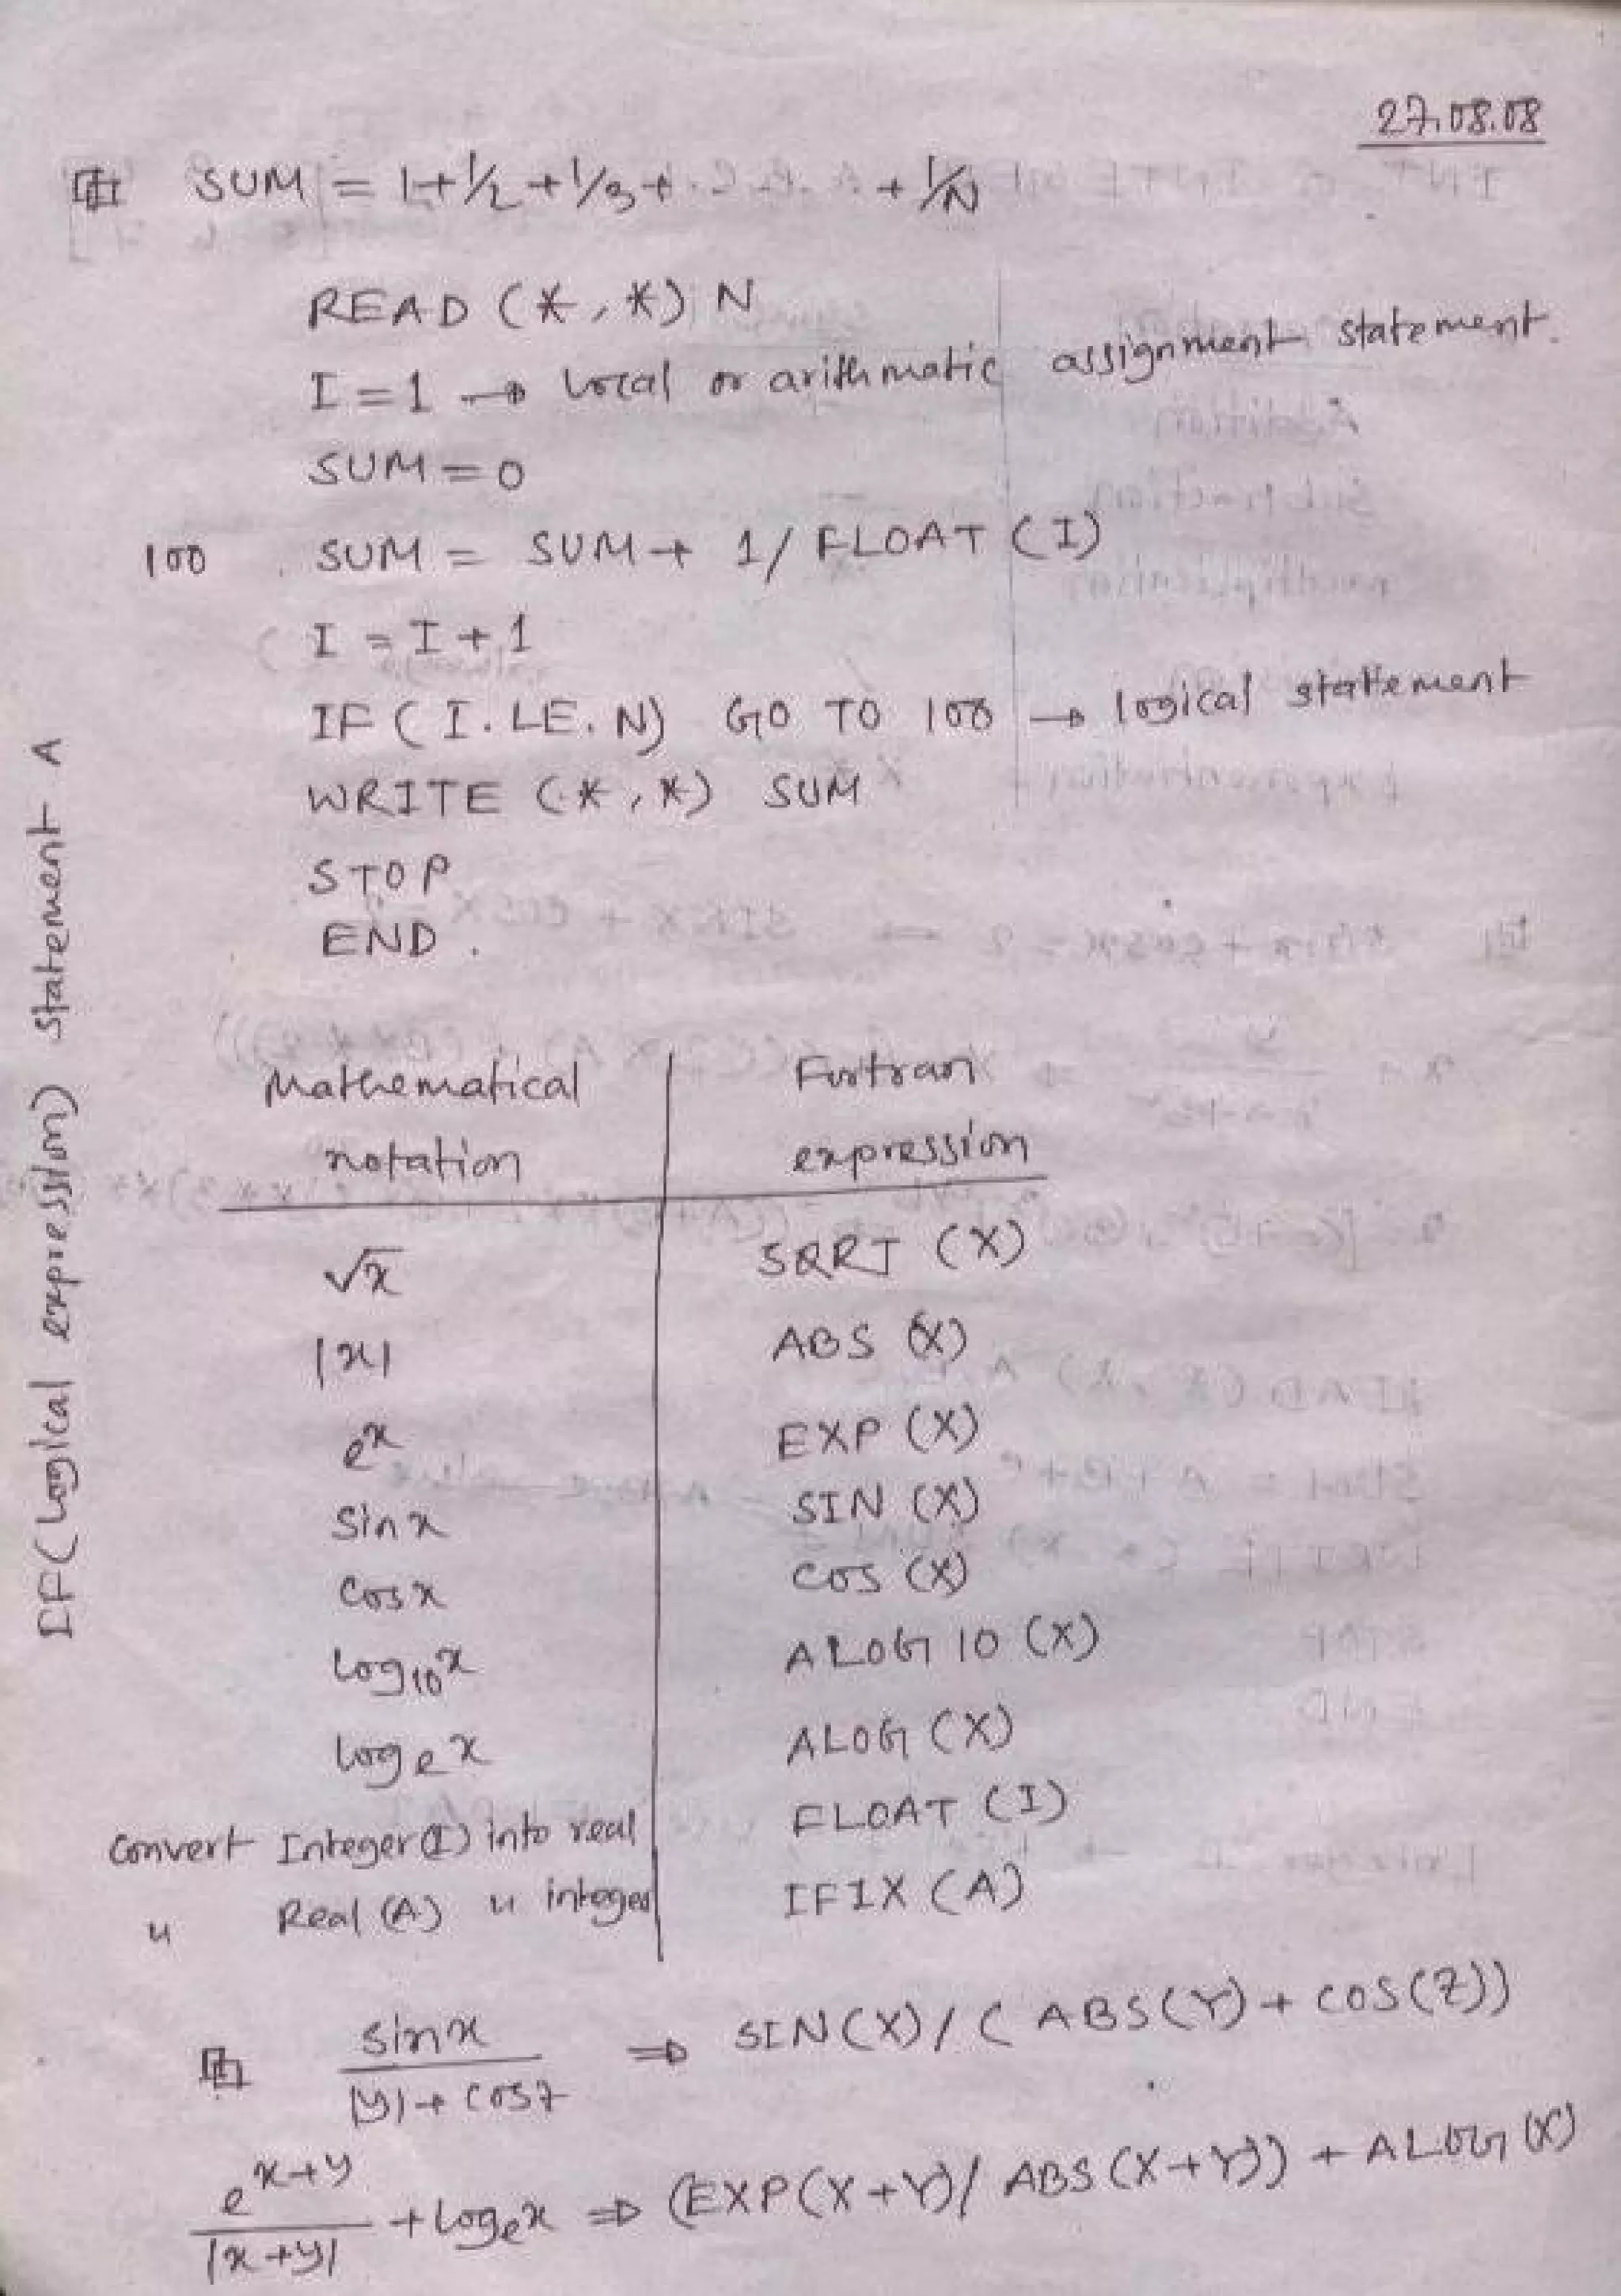 27.08.08
SUM = 1+1/2+1/3+ . . . . . + 1/N
READ (*,*) N
I=1 → local or arithmatic assignment statement.
SUM=0
100 SUM = SUM+ 1/FLOAT (I)
I = I+1
IF (I.LE.N) GO TO 100 → logical statement
WRITE (*,*) SUM
STOP
END.
IF(Logical expression) statement A
Mathematical | Fortran
notation | expression
√x | SQRT (X)
|x| | ABS (X)
eˣ | EXP (X)
Sinx | SIN (X)
Cosx | COS (X)
Log₁₀x | ALOG 10 (X)
logₑx | ALOG (X)
Convert Integer(I) into real | FLOAT (I)
" Real (A) " integer | IFIX (A)
sinx
|y|+cosz ⇒ SIN(X)/(ABS(Y)+COS(Z))
e^x+y
|x+y| +logₑx ⇒ (EXP(X+Y)/ABS(X+Y))+ALOG(X)